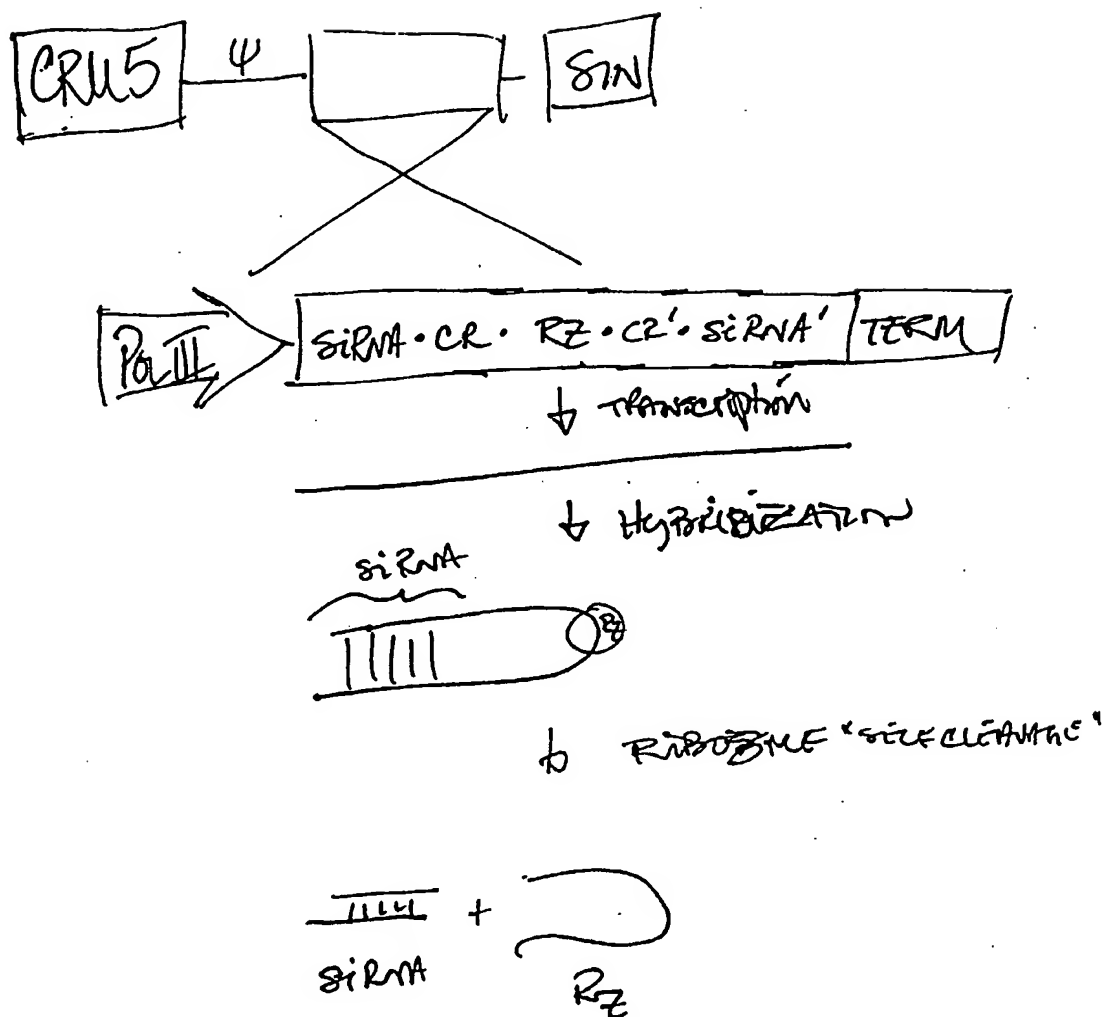 CRU5 ψ SIN
Pol III SiRNA · CR · RZ · CR' · SiRNA' TERM
↓ TRANSCRIPTION
↓ HYBRIDIZATION
siRNA
RZ
↓ RIBOZYME "SELF CLEAVAGE"
+
siRNA RZ